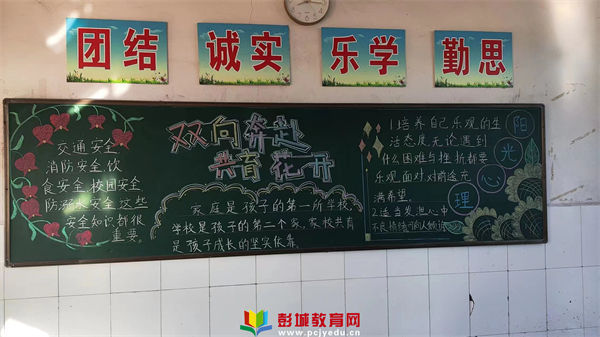 团结
诚实
乐学
勤思
交通安全
消防安全饮
食安全校园安全
防溺水安全这些
安全知识都很
重要。
双向奔赴
共育花开
家庭是孩子的第一所学校,
学校是孩子的第二个家,家校共育
是孩子成长的坚实依靠。
1.培养自己乐观的生
活态度无论遇到
什么困难与挫折都要
乐观面对对前途充
满希望。
2.适当发泄心中
不良情绪
阳
光
心
理
彭城教育网
www.pcjyedu.cn